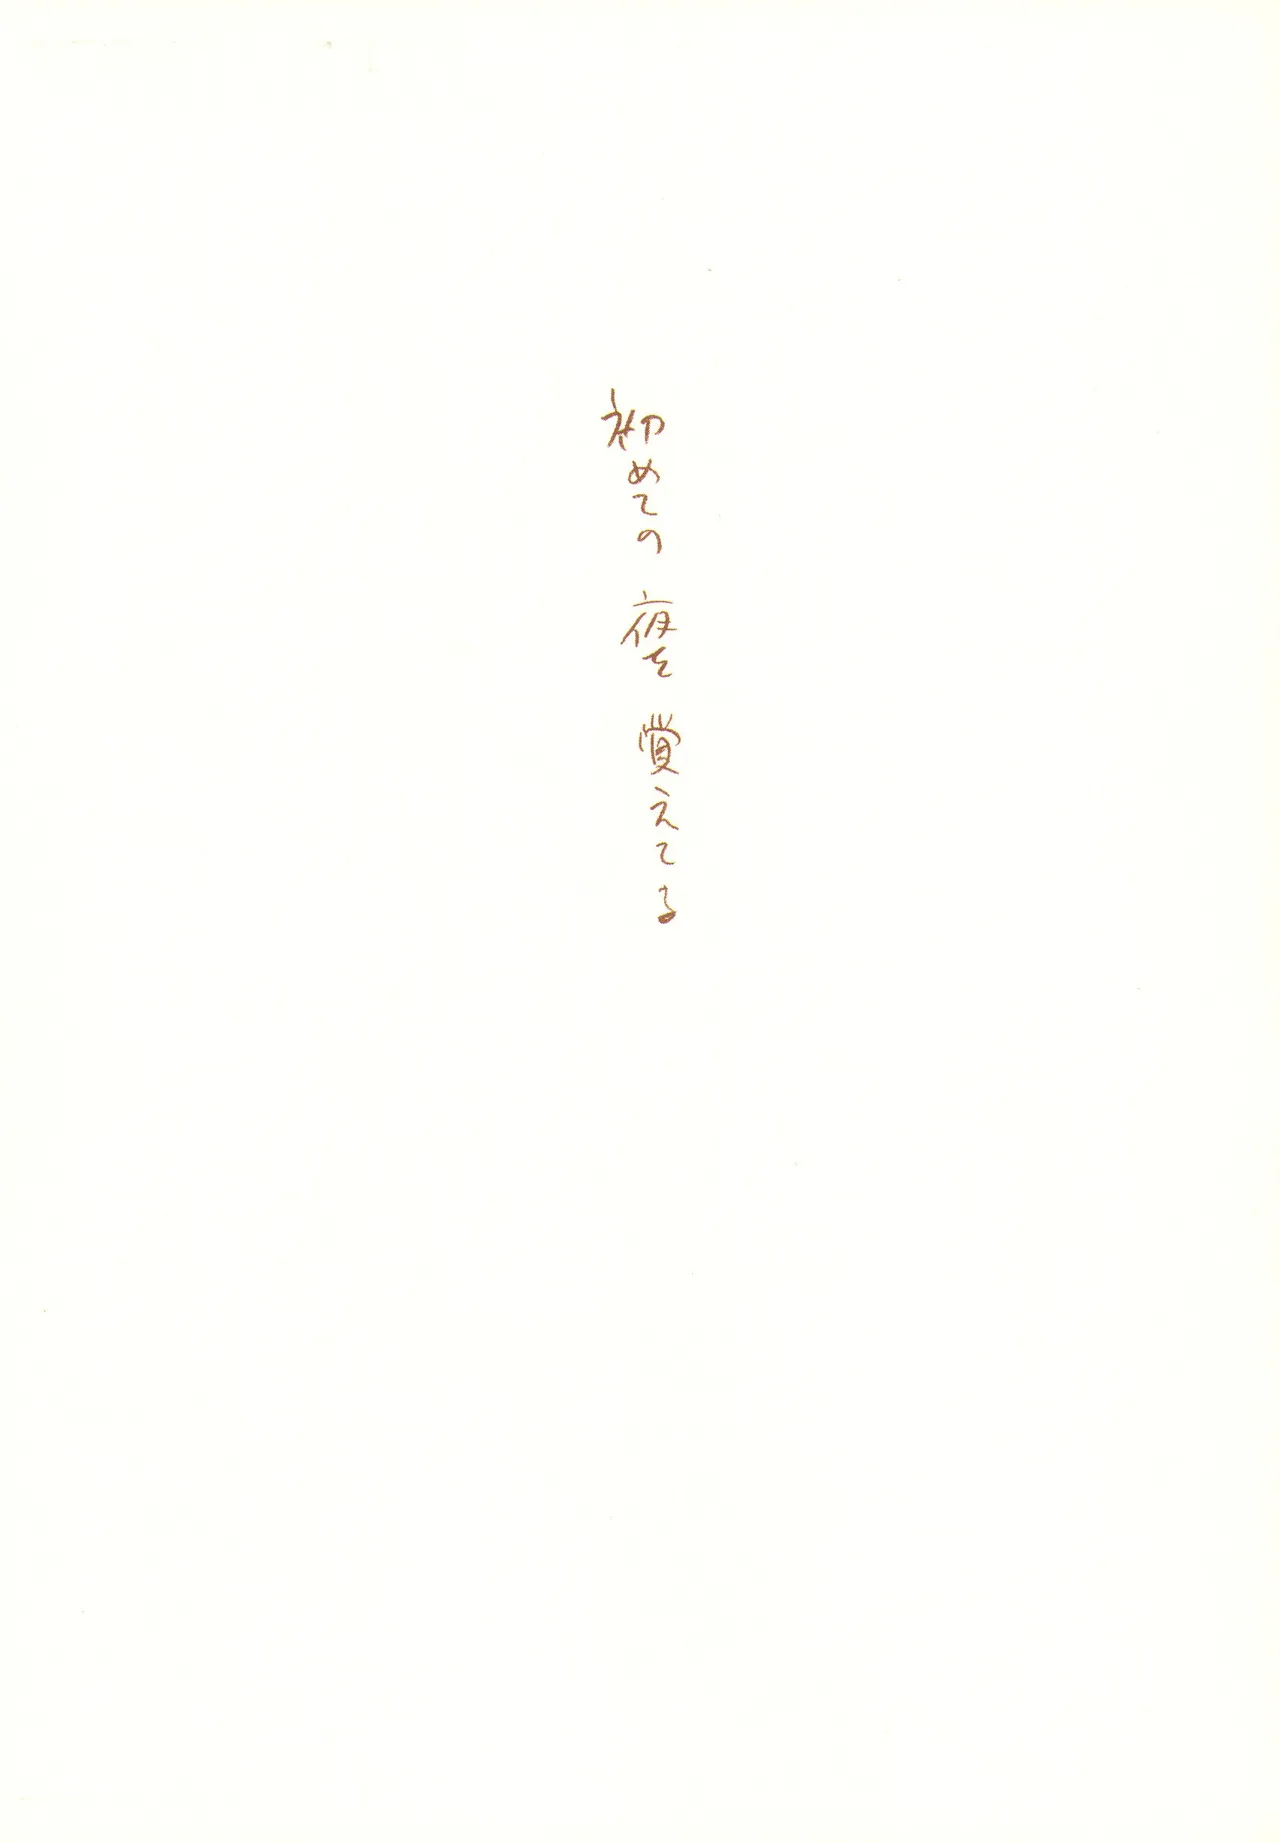 初めての夜を覚えてる